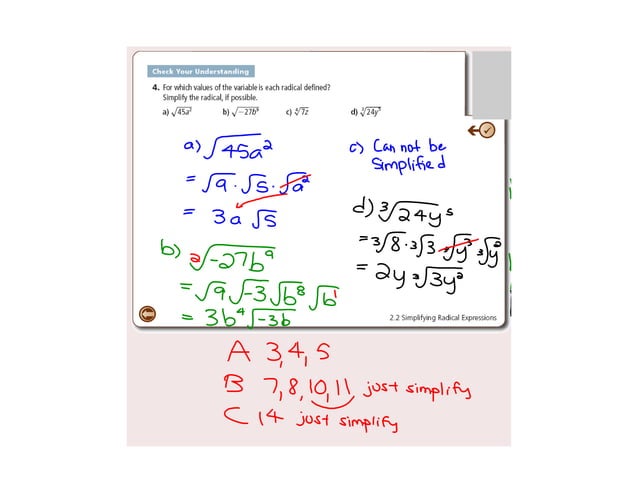 Check Your Understanding
4. For which values of the variable is each radical defined?
Simplify the radical, if possible.
a) √45a² b) √−27b⁹ c) ⁴√7z d) ³√24y⁵
a) √45a²
= √9 · √5 · √a²
= 3a √5
b) ²√-27b⁹
= √9 √-3 √b⁸ √b¹
= 3b⁴ √-3b
c) Can not be
Simplified
d) ³√24y⁵
= ³√8 · ³√3 · ³√y³ ³√y²
= 2y ³√3y²
2.2 Simplifying Radical Expressions
A 3,4,5
B 7,8,10,11 just simplify
C 14 just simplify